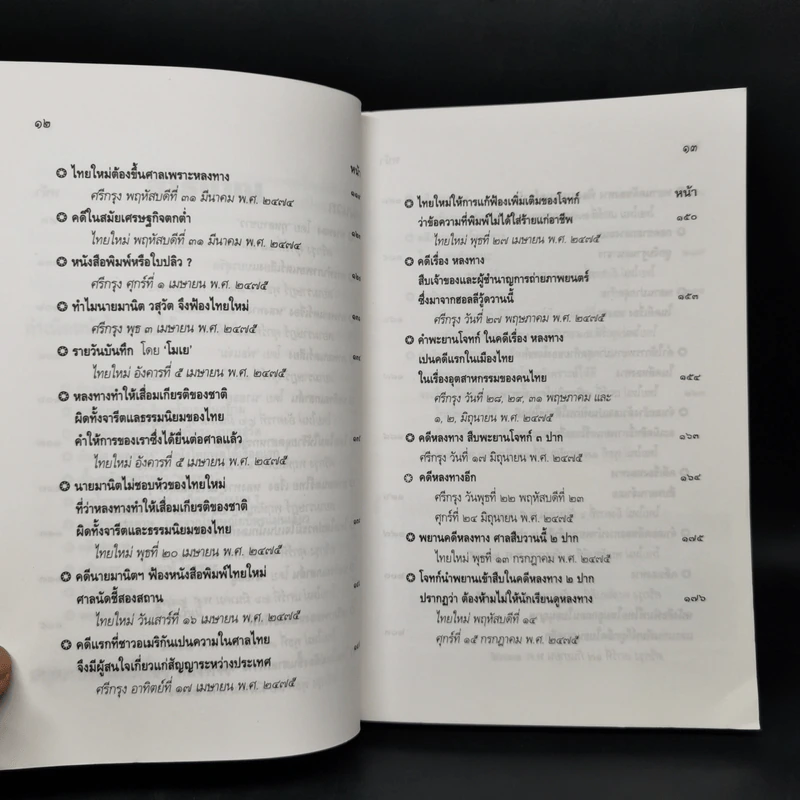 ๑๒
หน้า
✪ ไทยใหม่ต้องขึ้นศาลเพราะหลงทาง
ศรีกรุง พฤหัสบดีที่ ๓๑ มีนาคม พ.ศ. ๒๔๗๔
✪ คดีในสมัยเศรษฐกิจตกต่ำ
ไทยใหม่ พฤหัสบดีที่ ๓๑ มีนาคม พ.ศ. ๒๔๗๔
✪ หนังสือพิมพ์หรือใบปลิว ?
ศรีกรุง ศุกร์ที่ ๑ เมษายน พ.ศ. ๒๔๗๕
✪ ทำไมนายมานิต วสุวัต จึงฟ้องไทยใหม่
ศรีกรุง พุธ ๓ เมษายน พ.ศ. ๒๔๗๕
✪ รายวันบันทึก โดย ‘โมเย’
ไทยใหม่ อังคารที่ ๕ เมษายน พ.ศ. ๒๔๗๕
✪ หลงทางทำให้เสื่อมเกียรติของชาติ
ผิดทั้งจารีตแลธรรมนิยมของไทย
คำให้การของเราซึ่งได้ยื่นต่อศาลแล้ว
ไทยใหม่ อังคารที่ ๕ เมษายน พ.ศ. ๒๔๗๕
✪ นายมานิตไม่ชอบหัวของไทยใหม่
ที่ว่าหลงทางทำให้เสื่อมเกียรติของชาติ
ผิดทั้งจารีตและธรรมนิยมของไทย
ไทยใหม่ พุธที่ ๒๐ เมษายน พ.ศ. ๒๔๗๕
✪ คดีนายมานิตฯ ฟ้องหนังสือพิมพ์ไทยใหม่
ศาลนัดชี้สองสถาน
ไทยใหม่ วันเสาร์ที่ ๑๖ เมษายน พ.ศ. ๒๔๗๕
✪ คดีแรกที่ชาวอเมริกันเปนความในศาลไทย
จึงมีผู้สนใจเกี่ยวแก่สัญญาระหว่างประเทศ
ศรีกรุง อาทิตย์ที่ ๑๗ เมษายน พ.ศ. ๒๔๗๕
๑๓
หน้า
✪ ไทยใหม่ให้การแก้ฟ้องเพิ่มเติมของโจทก์
ว่าข้อความที่พิมพ์ไม่ได้ใส่ร้ายแก่อาชีพ ๑๕๐
ไทยใหม่ พุธที่ ๒๗ เมษายน พ.ศ. ๒๔๗๕
✪ คดีเรื่อง หลงทาง
สืบเจ้าของและผู้ชำนาญการถ่ายภาพยนตร์
ซึ่งมาจากฮอลลีวู้ดวานนี้ ๑๕๓
ศรีกรุง วันที่ ๒๗ พฤษภาคม พ.ศ. ๒๔๗๕
✪ คำพะยานโจทก์ ในคดีเรื่อง หลงทาง
เปนคดีแรกในเมืองไทย
ในเรื่องอุตสาหกรรมของคนไทย ๑๕๔
ศรีกรุง วันที่ ๒๘, ๒๙, ๓๑ พฤษภาคม และ
๑, ๒, มิถุนายน พ.ศ. ๒๔๗๕
✪ คดีหลงทาง สืบพะยานโจทก์ ๓ ปาก ๑๖๓
ศรีกรุง วันที่ ๑๗ มิถุนายน พ.ศ. ๒๔๗๕
✪ คดีหลงทางอีก ๑๖๔
ศรีกรุง วันพุธที่ ๒๒ พฤหัสบดีที่ ๒๓
ศุกร์ที่ ๒๔ มิถุนายน พ.ศ. ๒๔๗๕
✪ พยานคดีหลงทาง ศาลสืบวานนี้ ๒ ปาก ๑๗๕
ไทยใหม่ พุธที่ ๑๓ กรกฎาคม พ.ศ. ๒๔๗๕
✪ โจทก์นำพยานเข้าสืบในคดีหลงทาง ๒ ปาก
ปรากฏว่า ต้องห้ามไม่ให้นักเรียนดูหลงทาง ๑๗๖
ไทยใหม่ พฤหัสบดีที่ ๑๔
ศุกร์ที่ ๑๕ กรกฎาคม พ.ศ. ๒๔๗๕